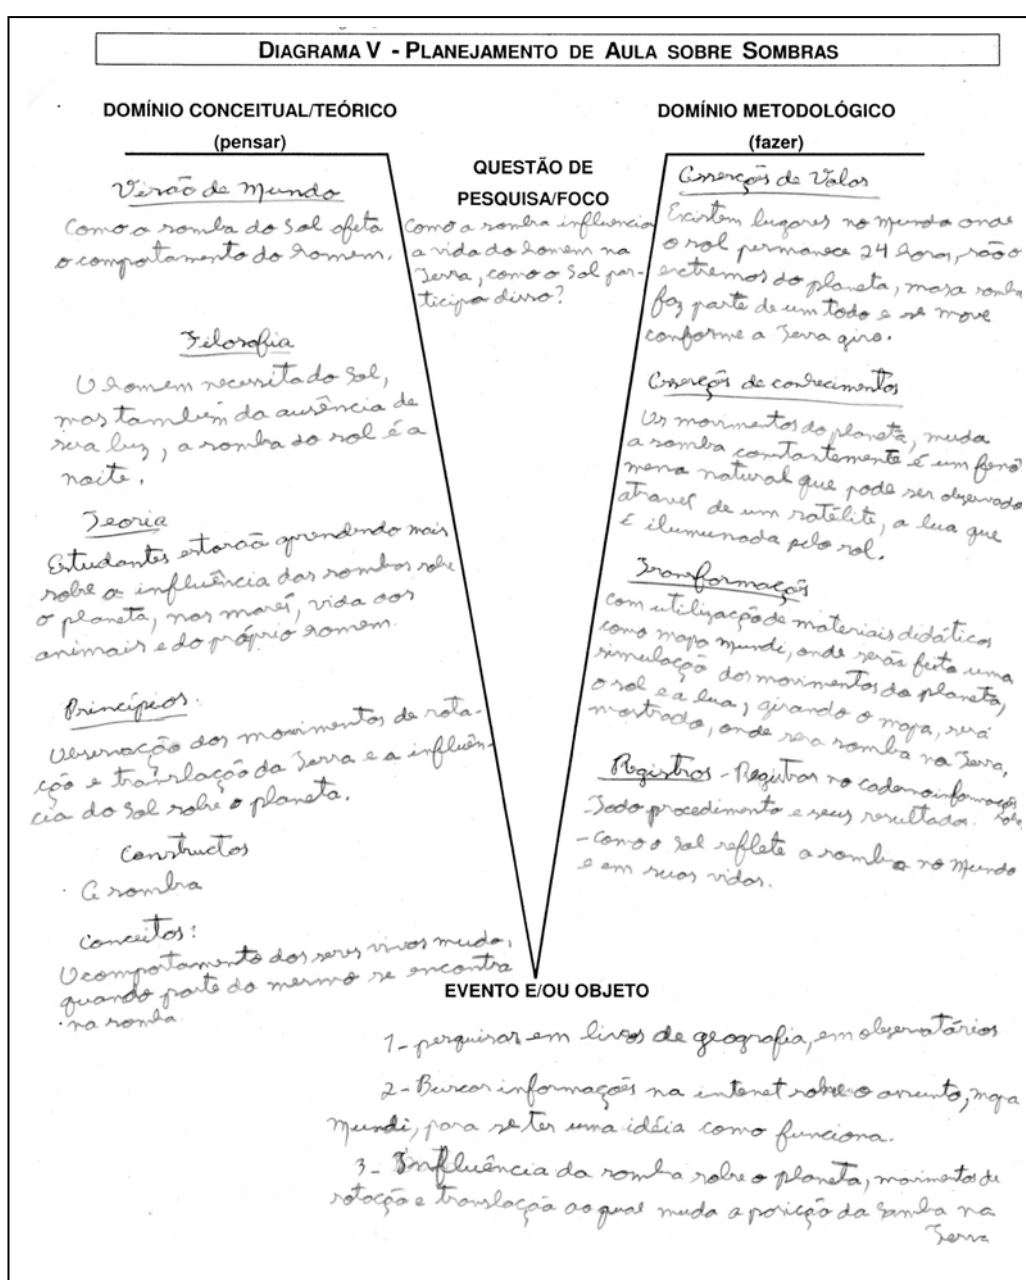 DIAGRAMA V - PLANEJAMENTO DE AULA SOBRE SOMBRAS
DOMÍNIO CONCEITUAL/TEÓRICO
(pensar)
Visão de Mundo
Como a sombra do Sol afeta
o comportamento do homem.
Filosofia
O homem necessita do Sol,
mas também da ausência de
sua luz, a sombra do sol é a
noite.
Teoria
Estudantes estarão aprendendo mais
sobre a influência das sombras sobre
o planeta, nas marés, vida dos
animais e do próprio homem.
Princípios:
Observação dos movimentos de rota-
ção e translação da Terra e a influên-
cia do Sol sobre o planeta.
Constructos
A sombra
Conceitos:
O comportamento dos seres vivos muda,
quando parte do mesmo se encontra
na sombra.
QUESTÃO DE
PESQUISA/FOCO
Como a sombra influencia
a vida do homem na
Terra, como o Sol par-
ticipa disso?
DOMÍNIO METODOLÓGICO
(fazer)
Asserções de Valor
Existem lugares no mundo onde
o sol permanece 24 horas, são o
extremos do planeta, mas a sombra
faz parte de um todo e se move
conforme a Terra gira.
Asserções de conhecimentos
Os movimentos do planeta, muda
a sombra constantemente é um fenô
meno natural que pode ser observado
atravel de um satélite, a lua que
é ilumunada pelo sol.
Transformações
com utilização de materiais didáticos
como mapa mundi, onde serás feita uma
simulação dos movimentos do planeta,
o sol e a lua, girando o mapa, será
mostrado, onde sera sombra na Terra,
Registros - Registrar no caderno informações
sobre
- Todo procedimento e seus resultados.
- como o sol reflete a sombra no Mundo
e em suas vidas.
EVENTO E/OU OBJETO
1- pesquisar em livros de geografia, em observatórios
2- Buscar informações na intenet sobre o assunto, mapa
Mundi, para se ter uma idéia como funciona.
3- Influência da sombra sobre o planeta, movimentos de
rotação e translação ao qual muda a posicção da sombra na
Terra